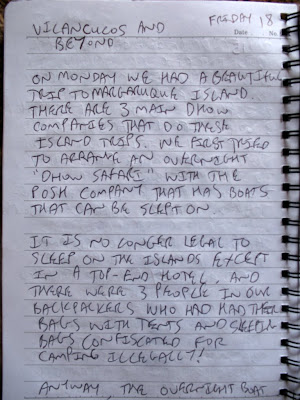 FRIDAY 18
VILANCULOS AND
BEYOND
Date No.
ON MONDAY WE HAD A BEAUTIFUL
TRIP TO MARGARUQUE ISLAND.
THERE ARE 3 MAIN DHOW
COMPANIES THAT DO THESE
ISLAND TRIPS. WE FIRST TRIED
TO ARRANGE AN OVERNIGHT
"DHOW SAFARI" WITH THE
POSH COMPANY THAT HAS BOATS
THAT CAN BE SLEPT ON
IT IS NO LONGER LEGAL TO
SLEEP ON THE ISLANDS EXCEPT
IN A TOP-END HOTEL. AND
THERE WERE 3 PEOPLE IN OUR
BACKPACKERS WHO HAD HAD THEIR
BAGS WITH TENTS AND SLEEPING
BAGS CONFISCATED FOR
CAMPING ILLEGALLY!
ANYWAY, THE OVERNIGHT BOAT